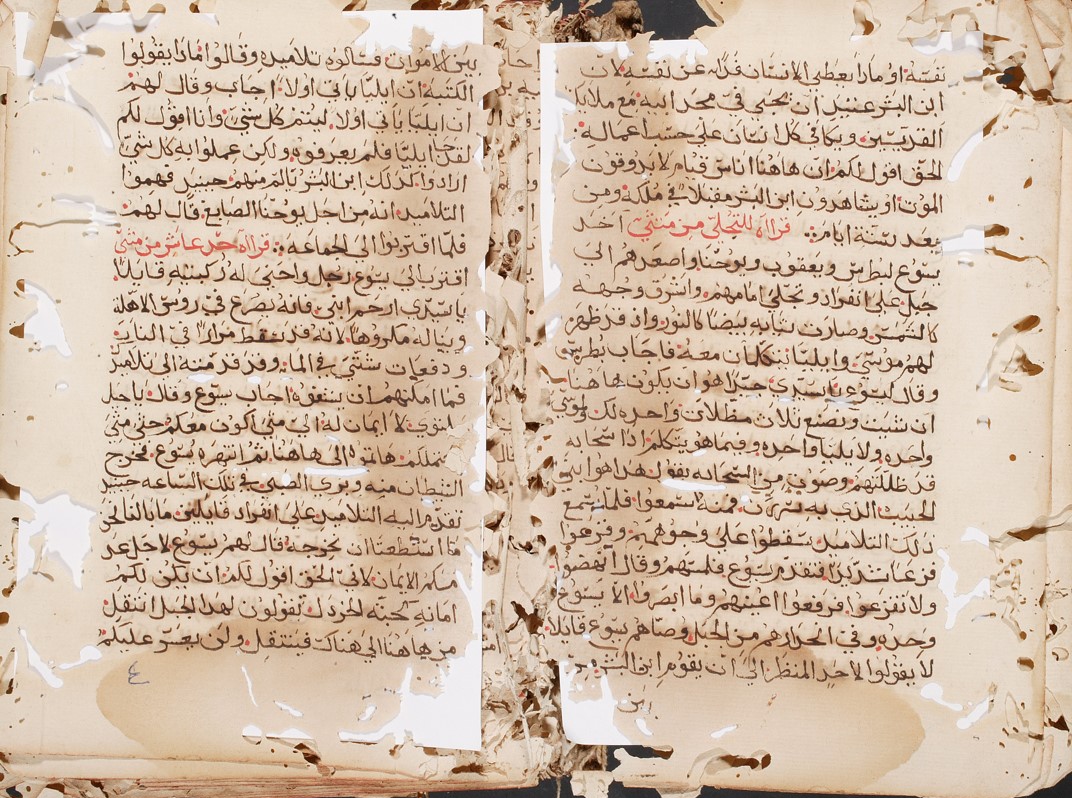 نفسه او ماذا يعطي الانسان فداه عن نفسه لان
ابن البشر عتيد ان يجي في مجد ابيه مع ملايكه
القديسين ويكافي كل انسان علي حسب اعماله
الحق اقول لكم ان هاهنا اناس قيام لا يدوقون
الموت او يشاهدون ابن البشر مقبلا في ملكه ومن
بعد ستة ايام قراه للتجلي من متي اخد
يسوع لبطرس ويعقوب ويوحنا واصعدهم الي
جبل علي انفراد وتجلي امامهم واشرق وجهه
كالشمس وصارت ثيابه بيضا كالنور واذ قد ظهر
لهم موسي وايليا يتكلمان معه فاجاب بطرس
وقال ليسوع يا سيدي جيد هو ان يكون هاهنا
ان شيت ونصنع ثلات مظلات واحده لك ولموسي
واحده ولايليا واحده وفيما هو يتكلم اذا سحابه
قد ظللتهم وصوت من السحابه يقول هدا هو ابني
الحبيب الذي به سررت فمنه استمعوا فلما سمع
ذلك التلاميد سقطوا علي وجوههم وفزعوا
فزعا شديدا فتقدم يسوع فلمسهم وقال انهضوا
ولا تفزعوا فرفعوا اعينهم وما ابصروا الا يسوع
وحده وفي انحدارهم من الجبل وصاهم يسوع قايلا
لا يقولوا لاحد المنظر الي ان يقوم ابن البشر من
بين
بين الاموات فسالوه تلاميده وقالوا لماذا يقولوا
الكتبه ان ايليا ياتي اولا اجاب وقال لهم
ان ايليا ياتي اولا ليتمم كل شي وانا اقول لكم
لقد جا ايليا فلم يعرفوه ولكن عملوا به كل شي
ارادوا كذلك ابن البشر يالم منهم حينيد فهموا
التلاميد انه من اجل يوحنا الصابغ قال لهم
فلما اقتربوا الي الجماعه قراه حد عاشر من متي
اقترب الي يسوع رجل واجتي له ركبتيه قايلا
يا سيدي ارحم ابني فانه يصرع في روس الاهله
ويناله مكروها لانه قد يسقط مرارا في النار
ودفعات شتي في الما وقد قدمته الي تلاميدك
فما امكنهم ان يشفوه اجاب يسوع وقال يا جيل
ملتوي لا ايمان له الي متي اكون معكم حتي متي
احتملكم هاتوه الي هاهنا ثم انتهره يسوع فخرج
الشيطان منه وبري الصبي في تلك الساعه حينيد
تقدم اليه التلاميد علي انفراد قايلين ما بالنا نحن
ما استطعنا ان نخرجه قال لهم يسوع لاجل عدم
ايمانكم الايمان لاني الحق اقول لكم ان يكن لكم
امانه كحبة الخردل تقولون لهدا الجبل انتقل
من هاهنا الي هناك فينتقل ولن يعسر عليكم
٤